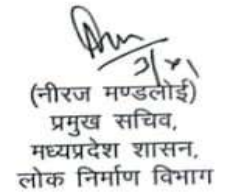 (नीरज मण्डलोई)
प्रमुख सचिव,
मध्यप्रदेश शासन,
लोक निर्माण विभाग